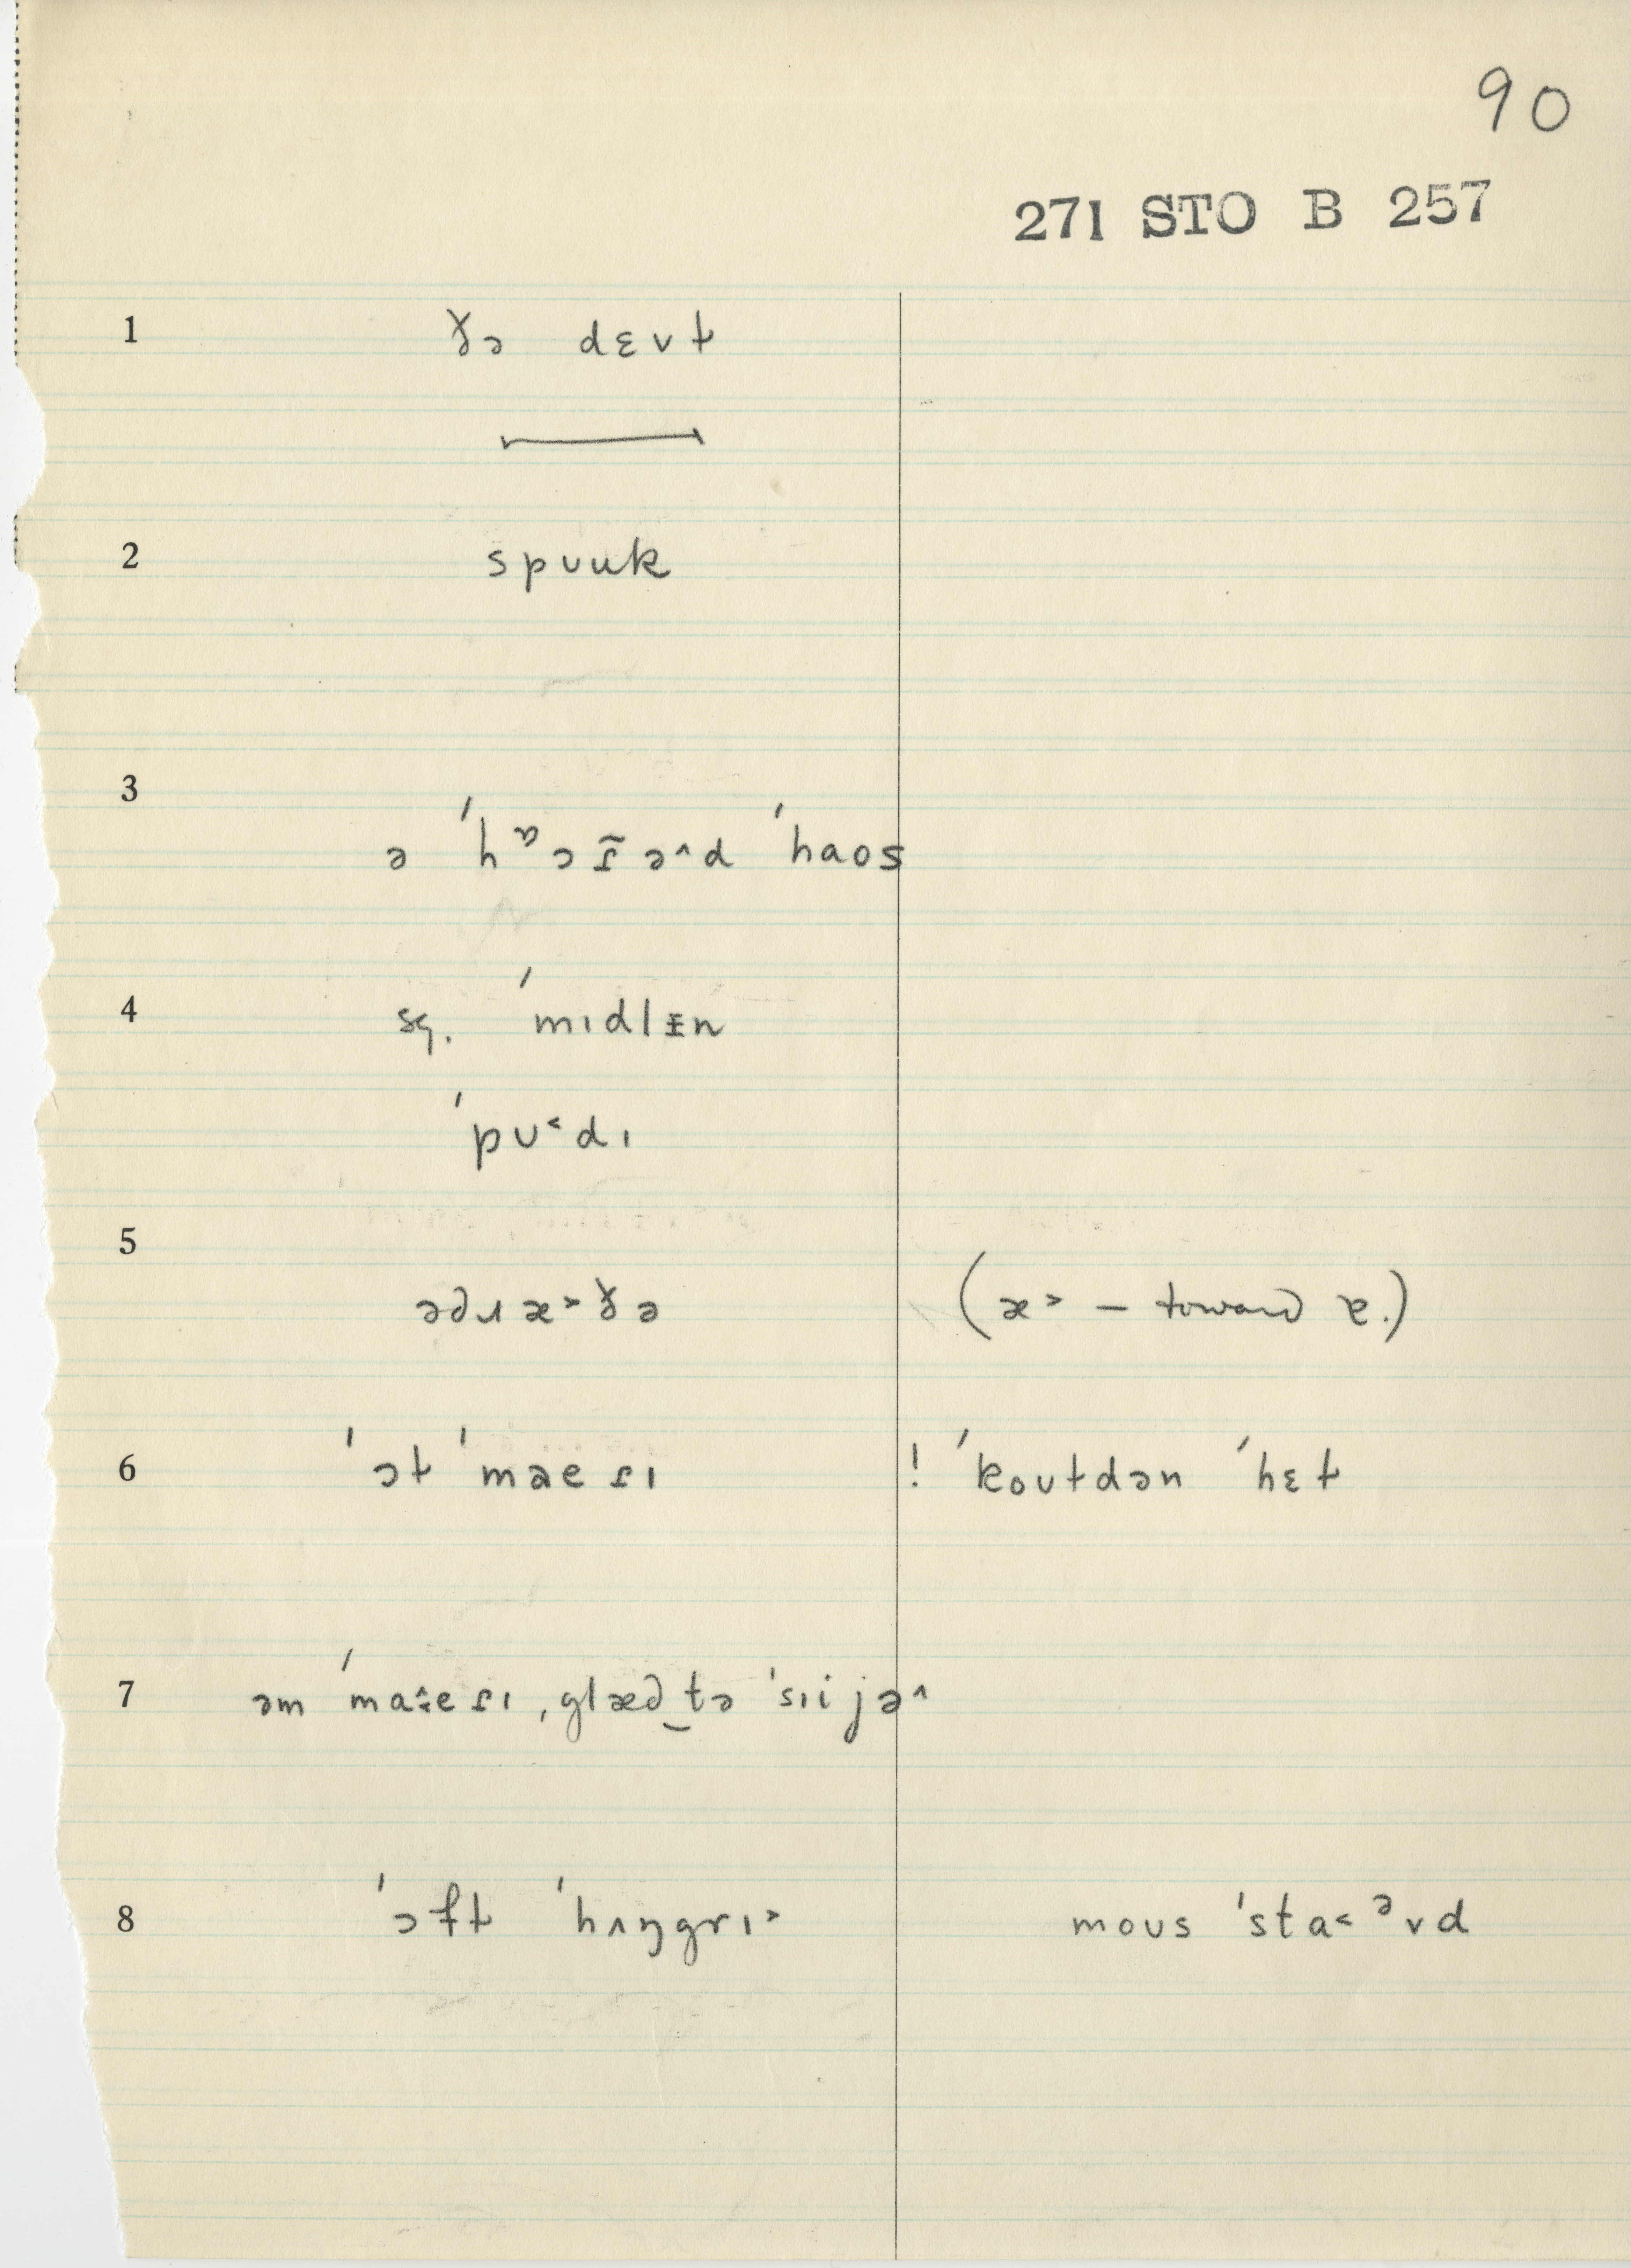 90
271 STO B 257
1 ɤə dɛvɫ
2 spuuk
3 ə ˈhɒɔɾ̃əˆd ˈhaos
4 sq. ˈmɪdlᵻn
ˈpʊ˂dɪ
5 əðɹæ˃ɤə (æ˃ – toward ɐ.)
6 ˈɔɫ ˈmaeɾɪ ! ˈkoʊɫdən ˈhɛɫ
7 əm ˈmaˑeɾɪ, glæð‿tə ˈsɪijəˆ
8 ˈɔfɫ ˈhʌŋgrɪ˃ moʊs ˈsta˂ᵊvd